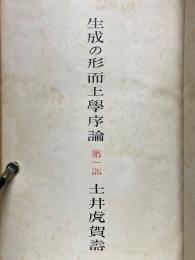 生成の形而上學序論 第一部 土井虎賀壽